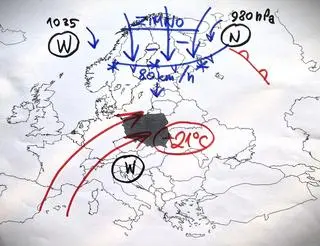 1035
ZIMNO
980 hPa
W
N
80 km/h
~21°C
W